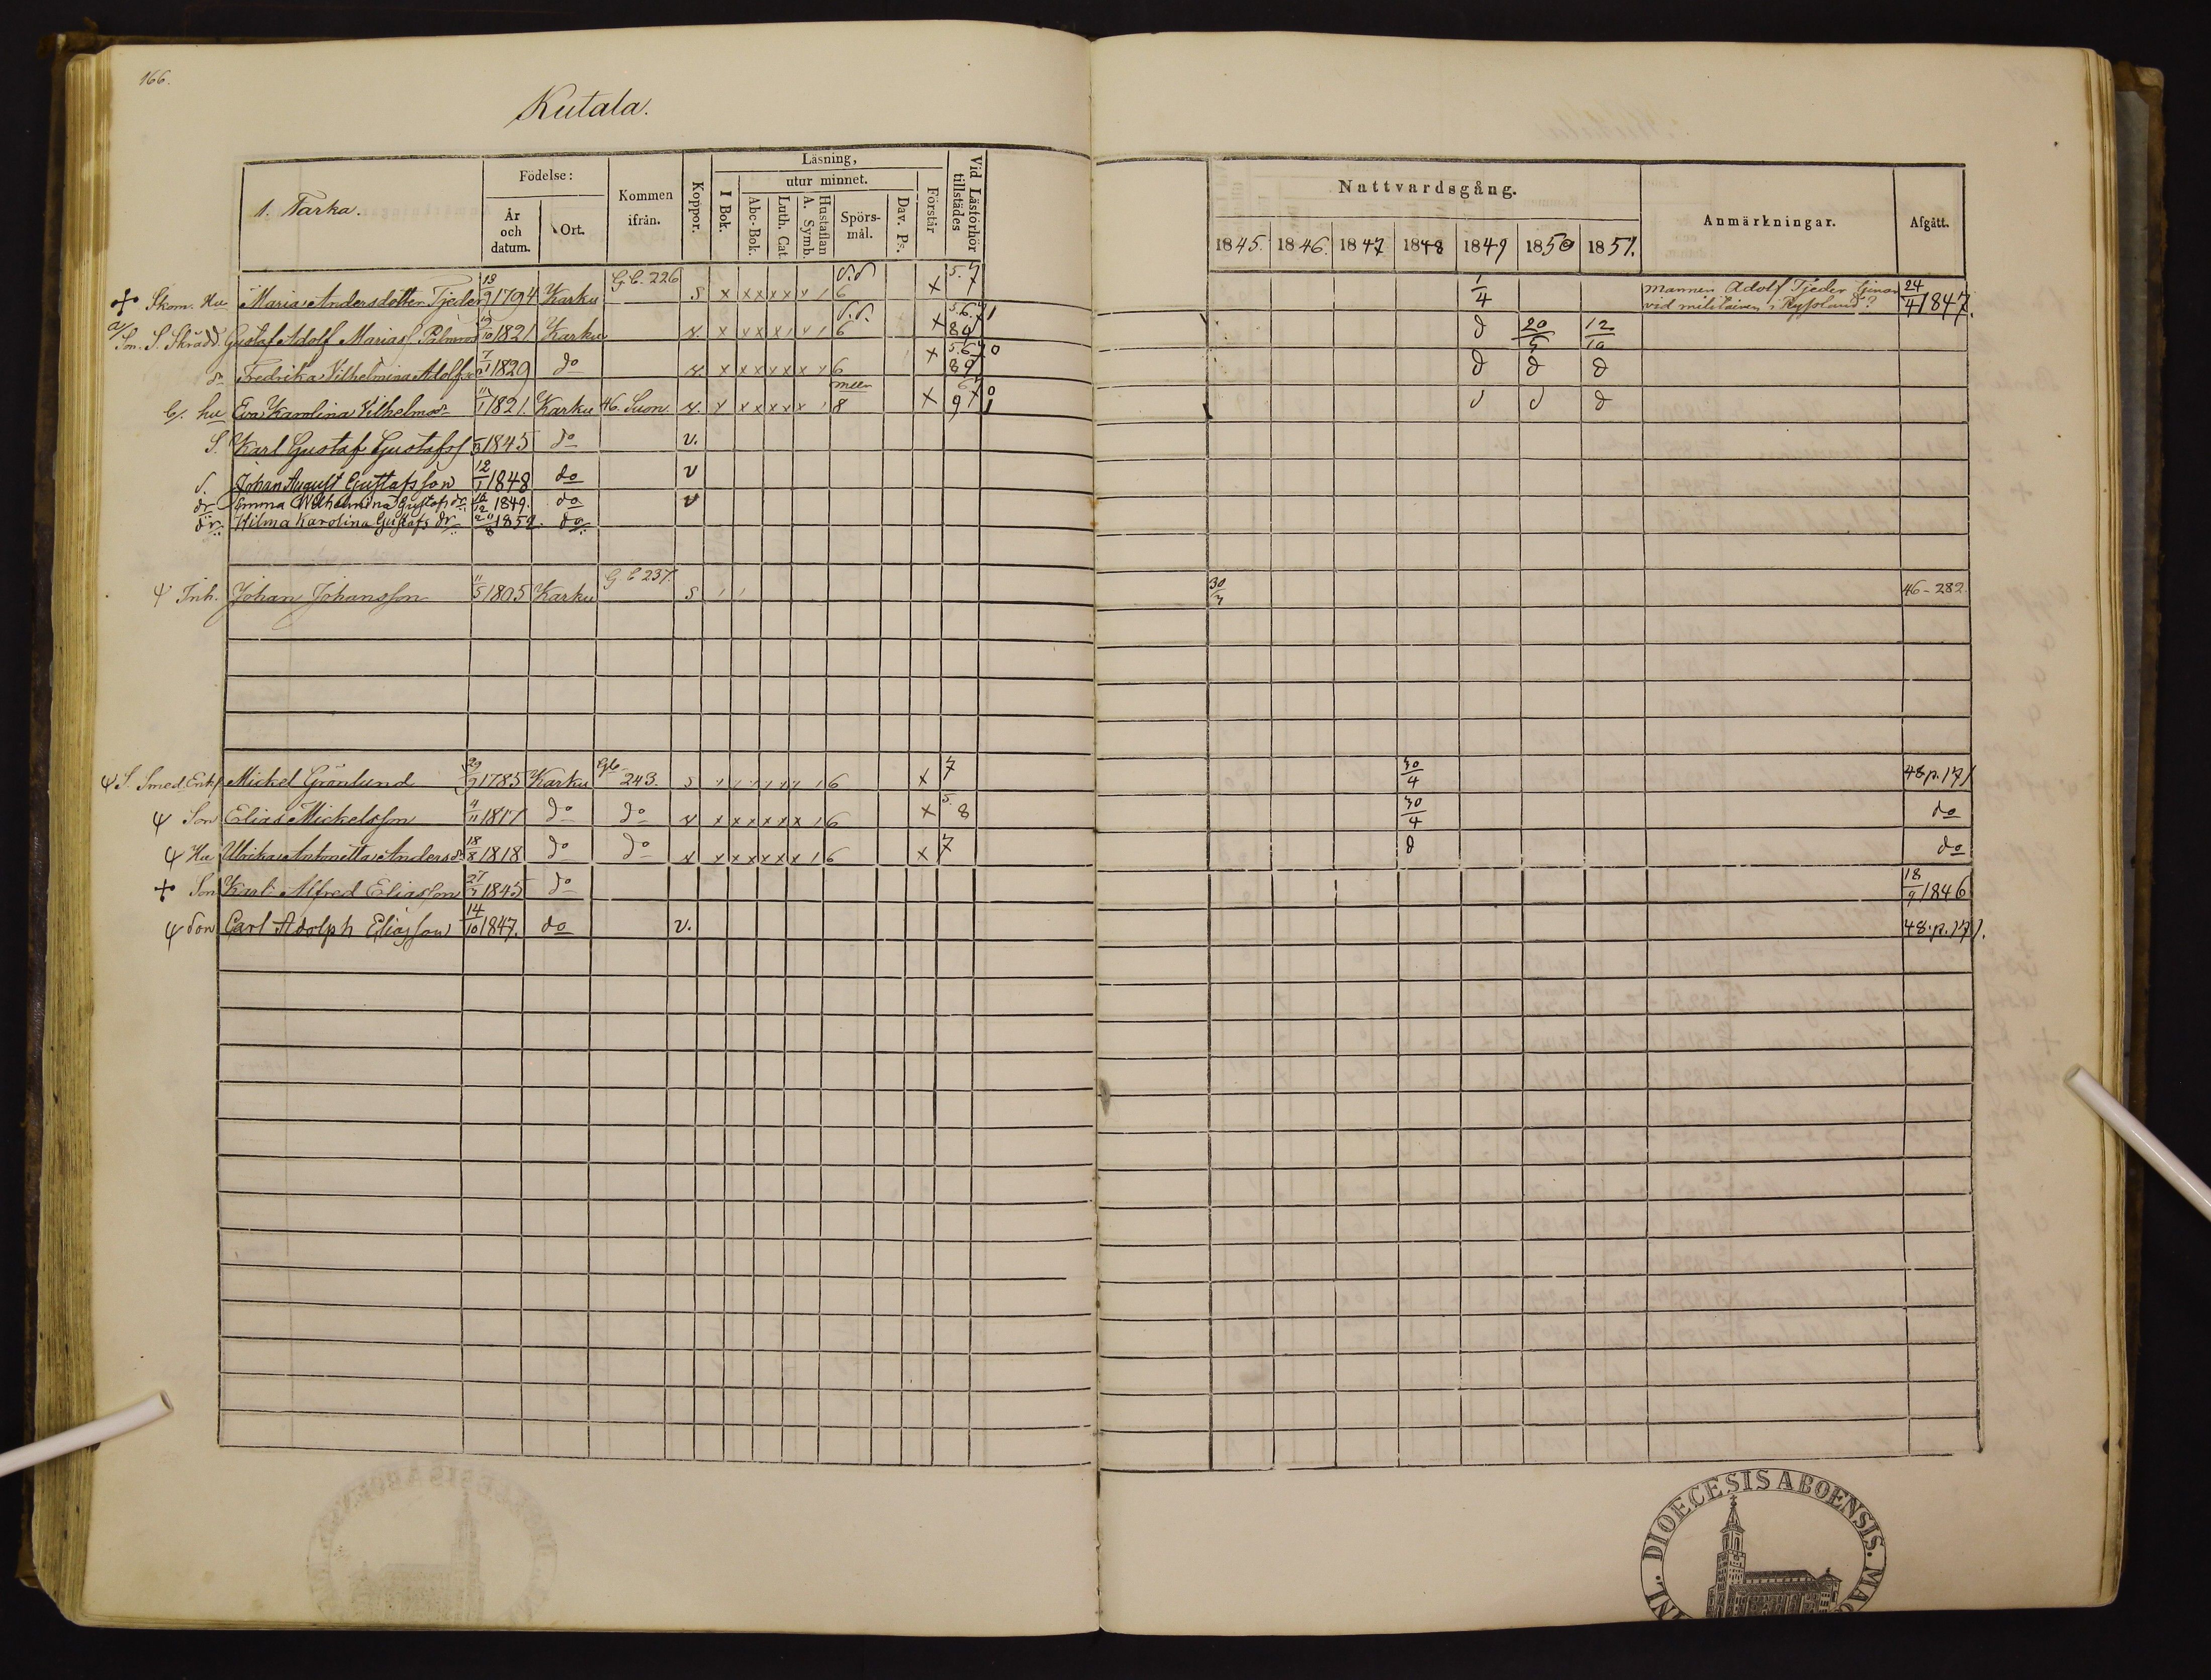 166.
Kutala.
1. Tarka.
Födelse:
År och datum.
Ort.
Kommen ifrån.
Koppor.
Läsning,
I Bok.
utur minnet.
Abc-Bok.
Luth. Cat
Hustaflan A. Symb.
Spörs-mål.
Dav. Ps.
Förstår
Vid Läsförhör tillstädes
Nattvardsgång.
1845. 1846. 1847 1848 1849 1850 1851.
Anmärkningar.
Afgått.
Skom. Hu Maria Andersdotter Tjeder 18/9 1794 Karku G.C. 226 S x x x x x 6 x 5. 7 1/4 mannen Adolf Tjeder
vid militairen i Ryssland? 24/4 1847.
Son. S. Skrädd. Gustaf Adolf Mariass 1821 Karku v. x x x x 6 x 5.6.7 89 1 d 20/5 12/10
dr Fredrika Vilhelmina Adolfs 7/1 1829 do v. x x x x x x x 6 x 5.6.7 89 0 d d d
b/. hu Eva Karolina Vilhelmsdr 11/1 1821. Karku 46. Suon. v. x x x x x 8 x 67 9 d
S. Karl Gustaf Gustafss 1845 do v.
S. Johan August Gustafsson 12/1 1848 do v
dr Emma Wilhelmina Gustafs dr 1849. do v
dr: Hilma Karolina Gustafs dr 1852. do
Inh. Johan Johansson 11/5 1805 Karku G.C 237. S 30/3 46-282.
S. Smed. Enkl Mickel Grönlund 29/9 1785 Karku Gb 243. S 6 x 7 30/4 48 p. 171
Son Elias Mickelsson 4/11 1817 do do v x x x x x x 6 x 5. 8 30/4 do
Hu Ulrika Antonetta Andersdr 18/8 1818 do do v x x x x x x 6 x 7 d do
Son Karl Alfred Eliasson 27/3 1845 do 18/9 1846
Son Carl Adolph Eliasson 14/10 1847. do v. 48. p. 171.
DIOECESIS ABOENSIS.